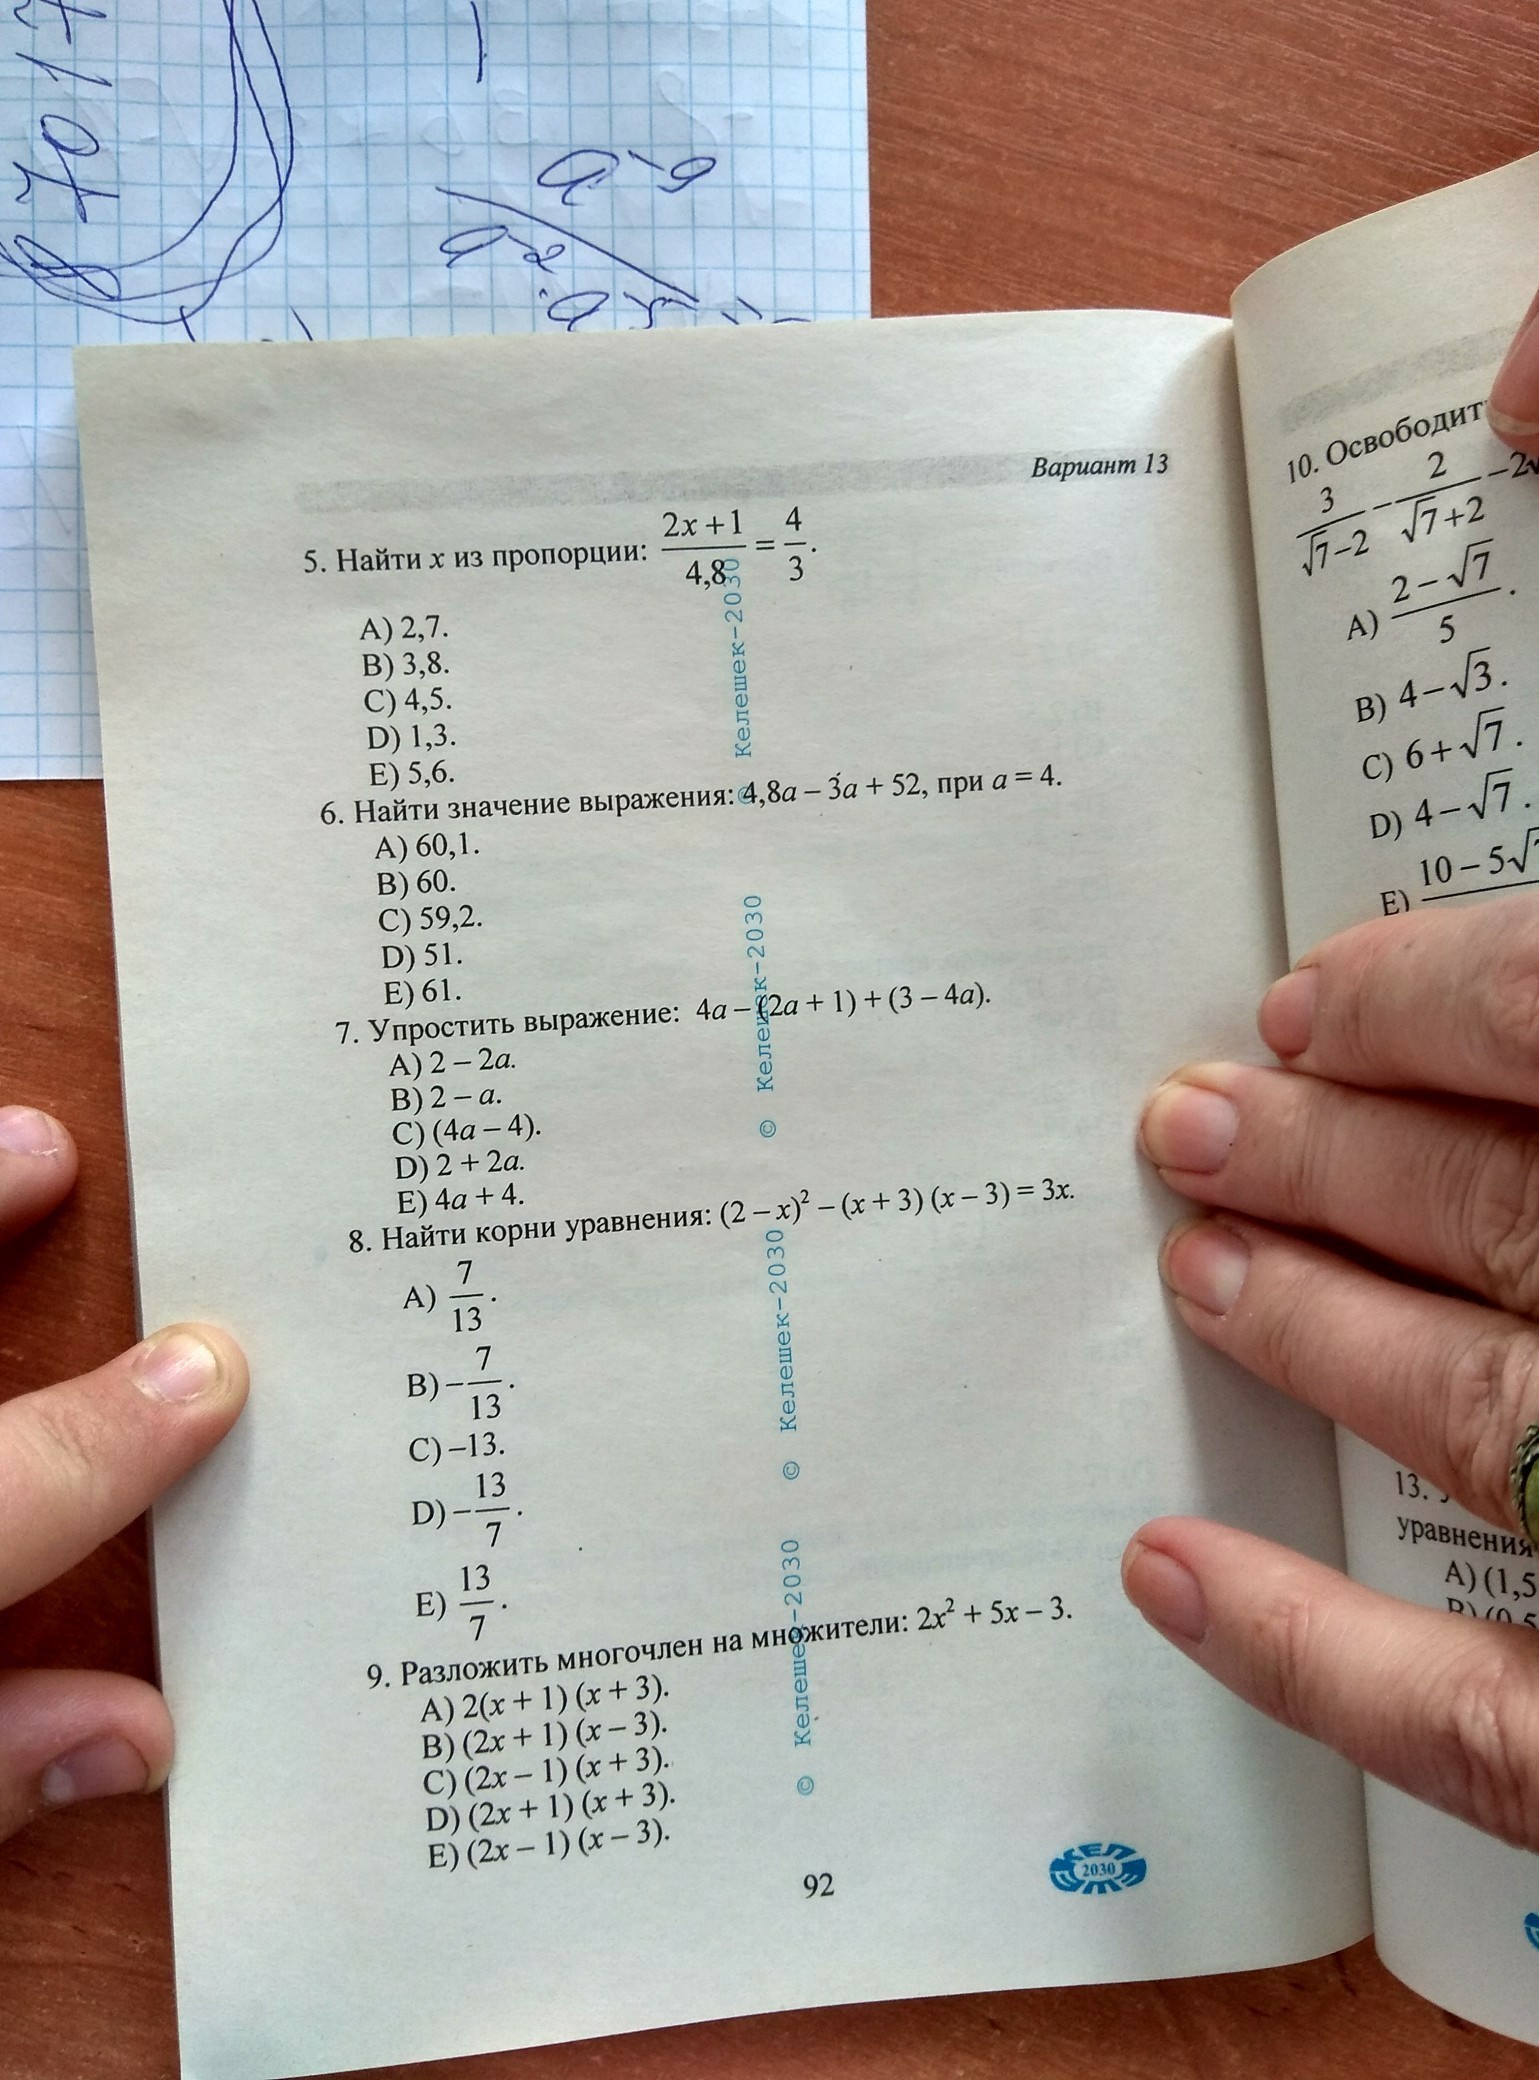 7017
a-9
a-2
Вариант 13
5. Найти x из пропорции: (2x + 1)/4,8 = 4/3.
A) 2,7.
B) 3,8.
C) 4,5.
D) 1,3.
E) 5,6.
6. Найти значение выражения: 4,8a – 3a + 52, при a = 4.
A) 60,1.
B) 60.
C) 59,2.
D) 51.
E) 61.
7. Упростить выражение: 4a – (2a + 1) + (3 – 4a).
A) 2 – 2a.
B) 2 – a.
C) (4a – 4).
D) 2 + 2a.
E) 4a + 4.
8. Найти корни уравнения: (2 – x)² – (x + 3) (x – 3) = 3x.
A) 7/13.
B) –7/13.
C) –13.
D) –13/7.
E) 13/7.
9. Разложить многочлен на множители: 2x² + 5x – 3.
A) 2(x + 1) (x + 3).
B) (2x + 1) (x – 3).
C) (2x – 1) (x + 3).
D) (2x + 1) (x + 3).
E) (2x – 1) (x – 3).
92
© Келешек-2030
© Келешек-2030
© Келешек-2030
© Келешек-2030
КЕЛЕШЕК 2030
10.
3/(√7–2) – 2/(√7+2) –2
A) (2 – √7)/5.
B) 4 – √3.
C) 6 + √7.
D) 4 – √7.
E) 10 – 5√
13.
уравнения
A) (1,5